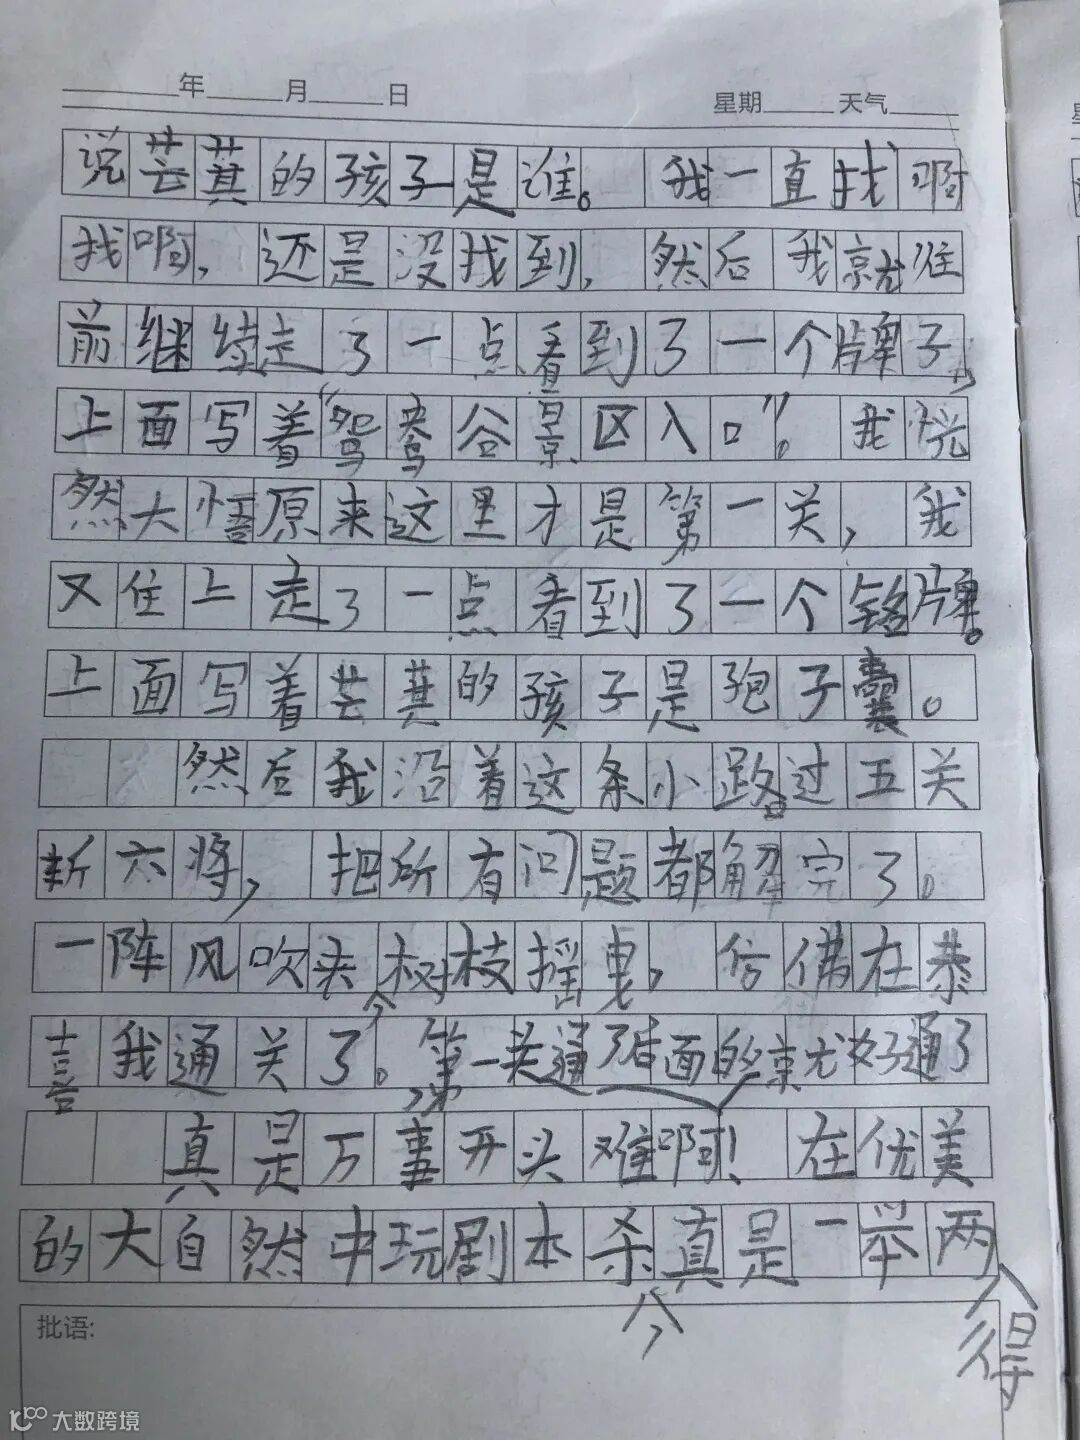 年 月 日 星期 天气
说芸萁的孩子是谁。我一直找啊
找啊，还是没找到，然后我就往
前继续走了一点看到了一个牌子，
上面写着“鸳鸯谷景区入口”。我恍
然大悟原来这里才是第一关，我
又住上走了一点看到了一个铭牌。
上面写着芸萁的孩子是孢子囊。
然后我沿着这条小路。过五关
斩六将，把所有问题都解完了。
一阵风吹来，树枝摇曳，仿佛在恭
喜我通关了。第一关通了后面的就好通了，
真是万事开头难啊！在优美
的大自然中玩剧本杀，真是一举两得
批语:
大数跨境